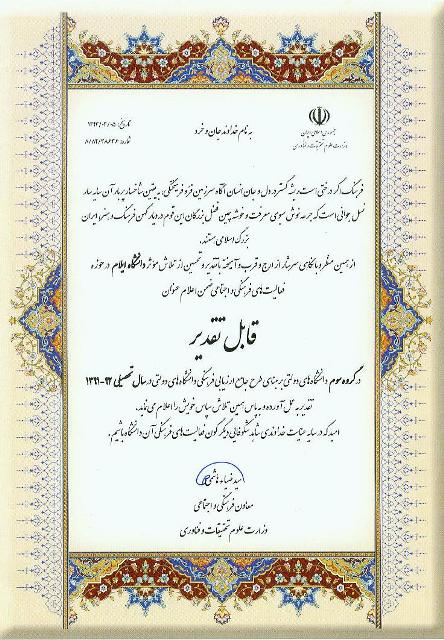 به نام خداوند جان و خرد
جمهوری اسلامی ایران
وزارت علوم، تحقیقات و فناوری
تاریخ:
شماره:
فرهنگ اگر درختی است ریشه گستر در دل و جان انسان آگاه سرزمین فره فرهنگی؛ به یقین شاخسار پربار آن سایه سار
نسل جوانی است که جرعه نوش سبوی معرفت و خوشه چین فضل بزرگان این قوم در دیار کهن فرهنگ و هنر، ایران
بزرگ اسلامی هستند.
از همین منظر و با نگاهی سرشار از ارج و قرب و آمیخته با تقدیر و تحسین از تلاش مؤثر دانشگاه ایلام در حوزه
فعالیت های فرهنگی و اجتماعی ضمن اعلام عنوان
قابل تقدیر
در گروه سوم دانشگاه های دولتی بر مبنای طرح جامع ارزیابی فرهنگی دانشگاه های دولتی در سال تحصیلی ۹۲-۱۳۹۱
تقدیر به عمل آورده و به پاس همین تلاش سپاس خویش را اعلام می نماید.
امید که در سایه عنایت خداوندی شاهد شکوفایی دیگر گون فعالیت های فرهنگی آن دانشگاه باشیم.
سید ضیاء هاشمی
معاون فرهنگی و اجتماعی
وزارت علوم تحقیقات و فناوری